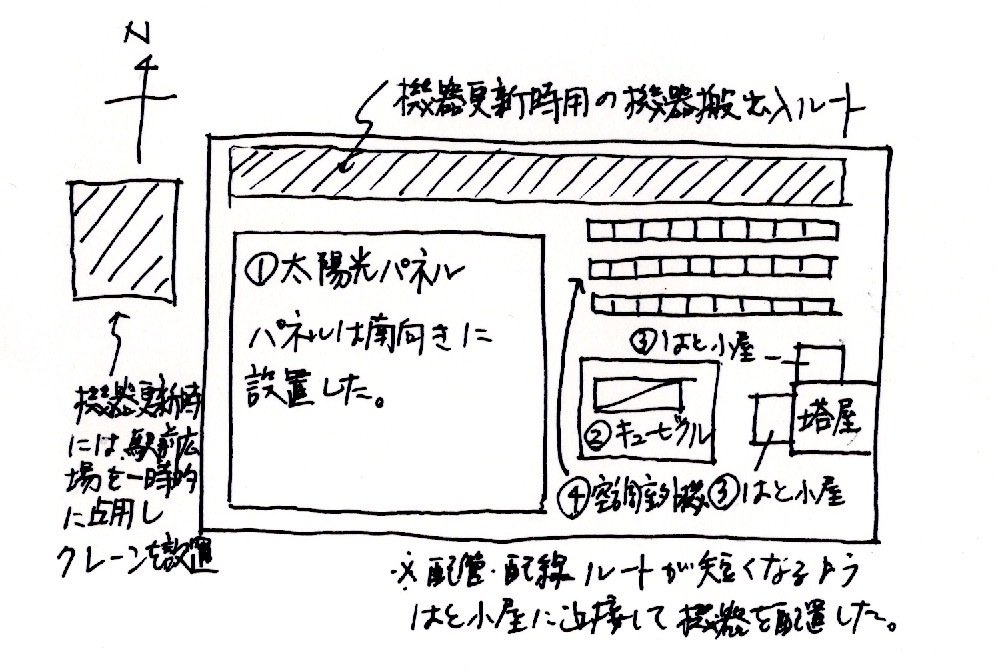 N
機器更新時用の機器搬出入ルート
①太陽光パネル
パネルは南向きに
設置した。
③はと小屋
塔屋
②キュービクル
④空調室外機
③はと小屋
機器更新時
には、駅前広
場を一時的
に占用し
クレーンを設置
※配管・配線ルートが短くなるよう
はと小屋に近接して機器を配置した。